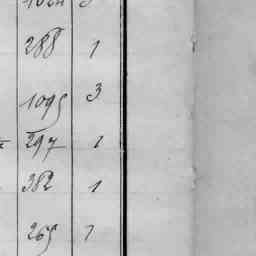 288 1
1095 3
297 1
382 1
265 1